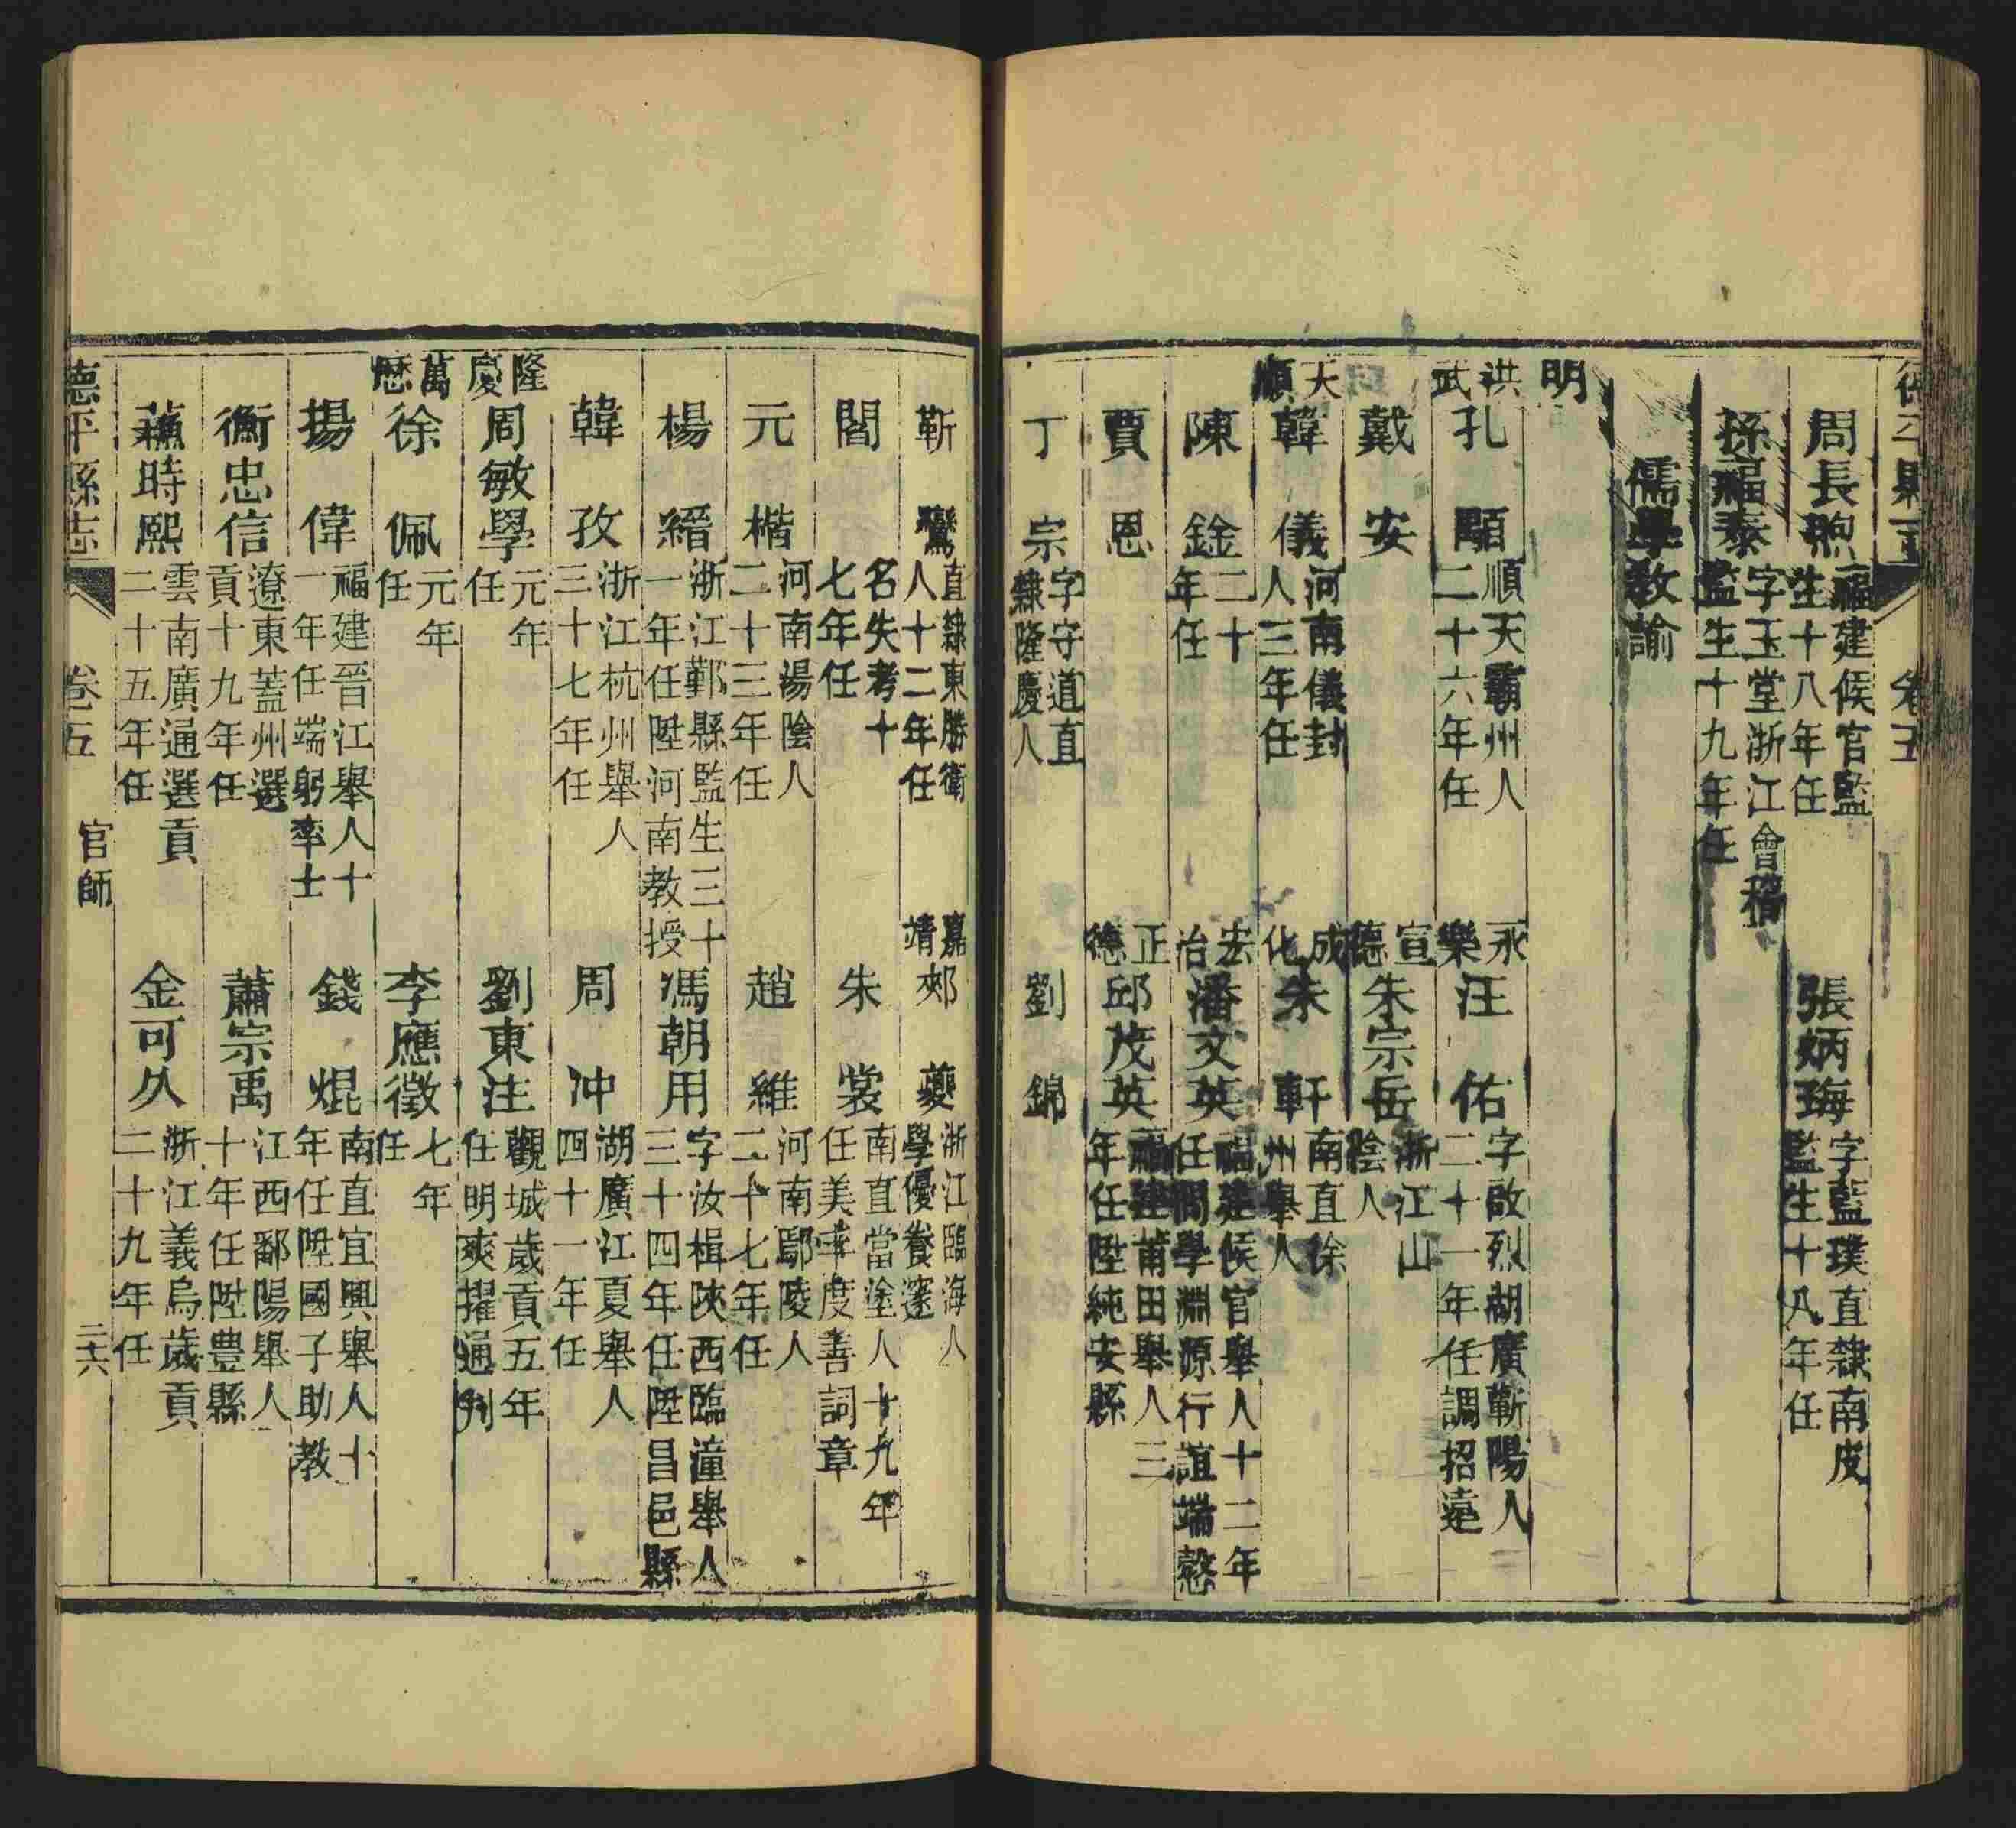 周長煦 福建候官監生十八年任 張炳𤥨 字藍璞直隸南皮監生十八年任
孫福泰 字玉堂浙江會稽監生十九年任
儒學教諭
明
洪武 孔顒 順天霸州人二十六年任 永樂 汪佑 字啟烈湖廣蘄陽人二十一年任調招遠
戴安 宣德 朱宗岳 浙江山陰人
天順 韓儀 河南儀封人三年任 成化 朱軒 南直徐州舉人
陳鋡 二十年任 宏治 潘文英 福建候官舉人十二年任問學淵源行誼端慤
賈恩 正德 邱茂英 福建莆田舉人三年任陞純安縣
丁宗 字守道直隸隆慶人 劉錦
靳鸞 直隸東勝衛人十二年任 嘉靖 郟夔 浙江臨海人學優養邃
閻 名失考十七年任 朱裳 南直當塗人十九年任美丰度善詞章
元楷 河南湯陰人二十三年任 趙維 河南鄢陵人二十七年任
楊縉 浙江鄞縣監生三十一年任陞河南教授 馮朝用 字汝楫陝西臨潼舉人三十四年任陞昌邑縣
韓孜 浙江杭州舉人三十七年任 周冲 湖廣江夏舉人四十一年任
隆慶 周敏學 元年任 劉東注 觀城歲貢五年任明爽擢通判
萬歷 徐佩 元年任 李應徵 七年任
揚偉 福建晉江舉人十一年任端躬率士 錢焜 南直宜興舉人十年任陞國子助教
衡忠信 遼東蓋州選貢十九年任 蕭宗禹 江西鄱陽舉人十年任陞豊縣
蘓時熙 雲南廣通選貢二十五年任 金可久 浙江義烏歲貢二十九年任
德平縣志 卷五 官師 二六